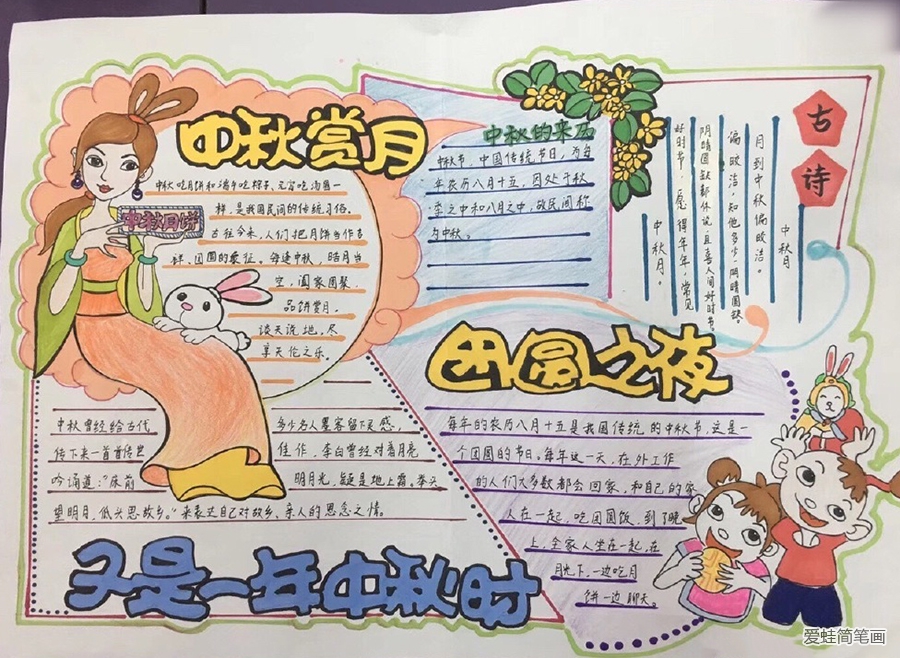 中秋赏月
中秋月饼
中秋吃月饼和端午吃粽子、元宵吃汤圆一
样,是我国民间的传统习俗。
古往今来,人们把月饼当作吉
祥、团圆的象征。每逢中秋,皓月当
空,阖家团聚,
品饼赏月,
谈天说地,尽
享天伦之乐。
中秋的来历
中秋节,中国传统节日,为每
年农历八月十五,因处于秋
季之中和八月之中,故民间称
为中秋。
古诗
中秋月
月到中秋偏皎洁。
偏皎洁,知他多少,阴晴圆缺。
阴晴圆缺都休说,且喜人间好时节。
好时节,愿得年年,常见
中秋月。
团圆之夜
每年的农历八月十五是我国传统的中秋节,这是一
个团圆的节日。每年这一天,在外工作
的人们大多数都会回家,和自己的家
人在一起,吃团圆饭,到了晚
上,全家人坐在一起,在
月光下,一边吃月
饼一边聊天。
中秋曾经给古代 多少名人墨客留下灵感,
传下来一首首传世 佳作,李白曾经对着月亮
吟诵道:“床前 明月光,疑是地上霜,举头
望明月,低头思故乡。”来表达自己对故乡、亲人的思念之情。
又是一年中秋时
爱蛙简笔画